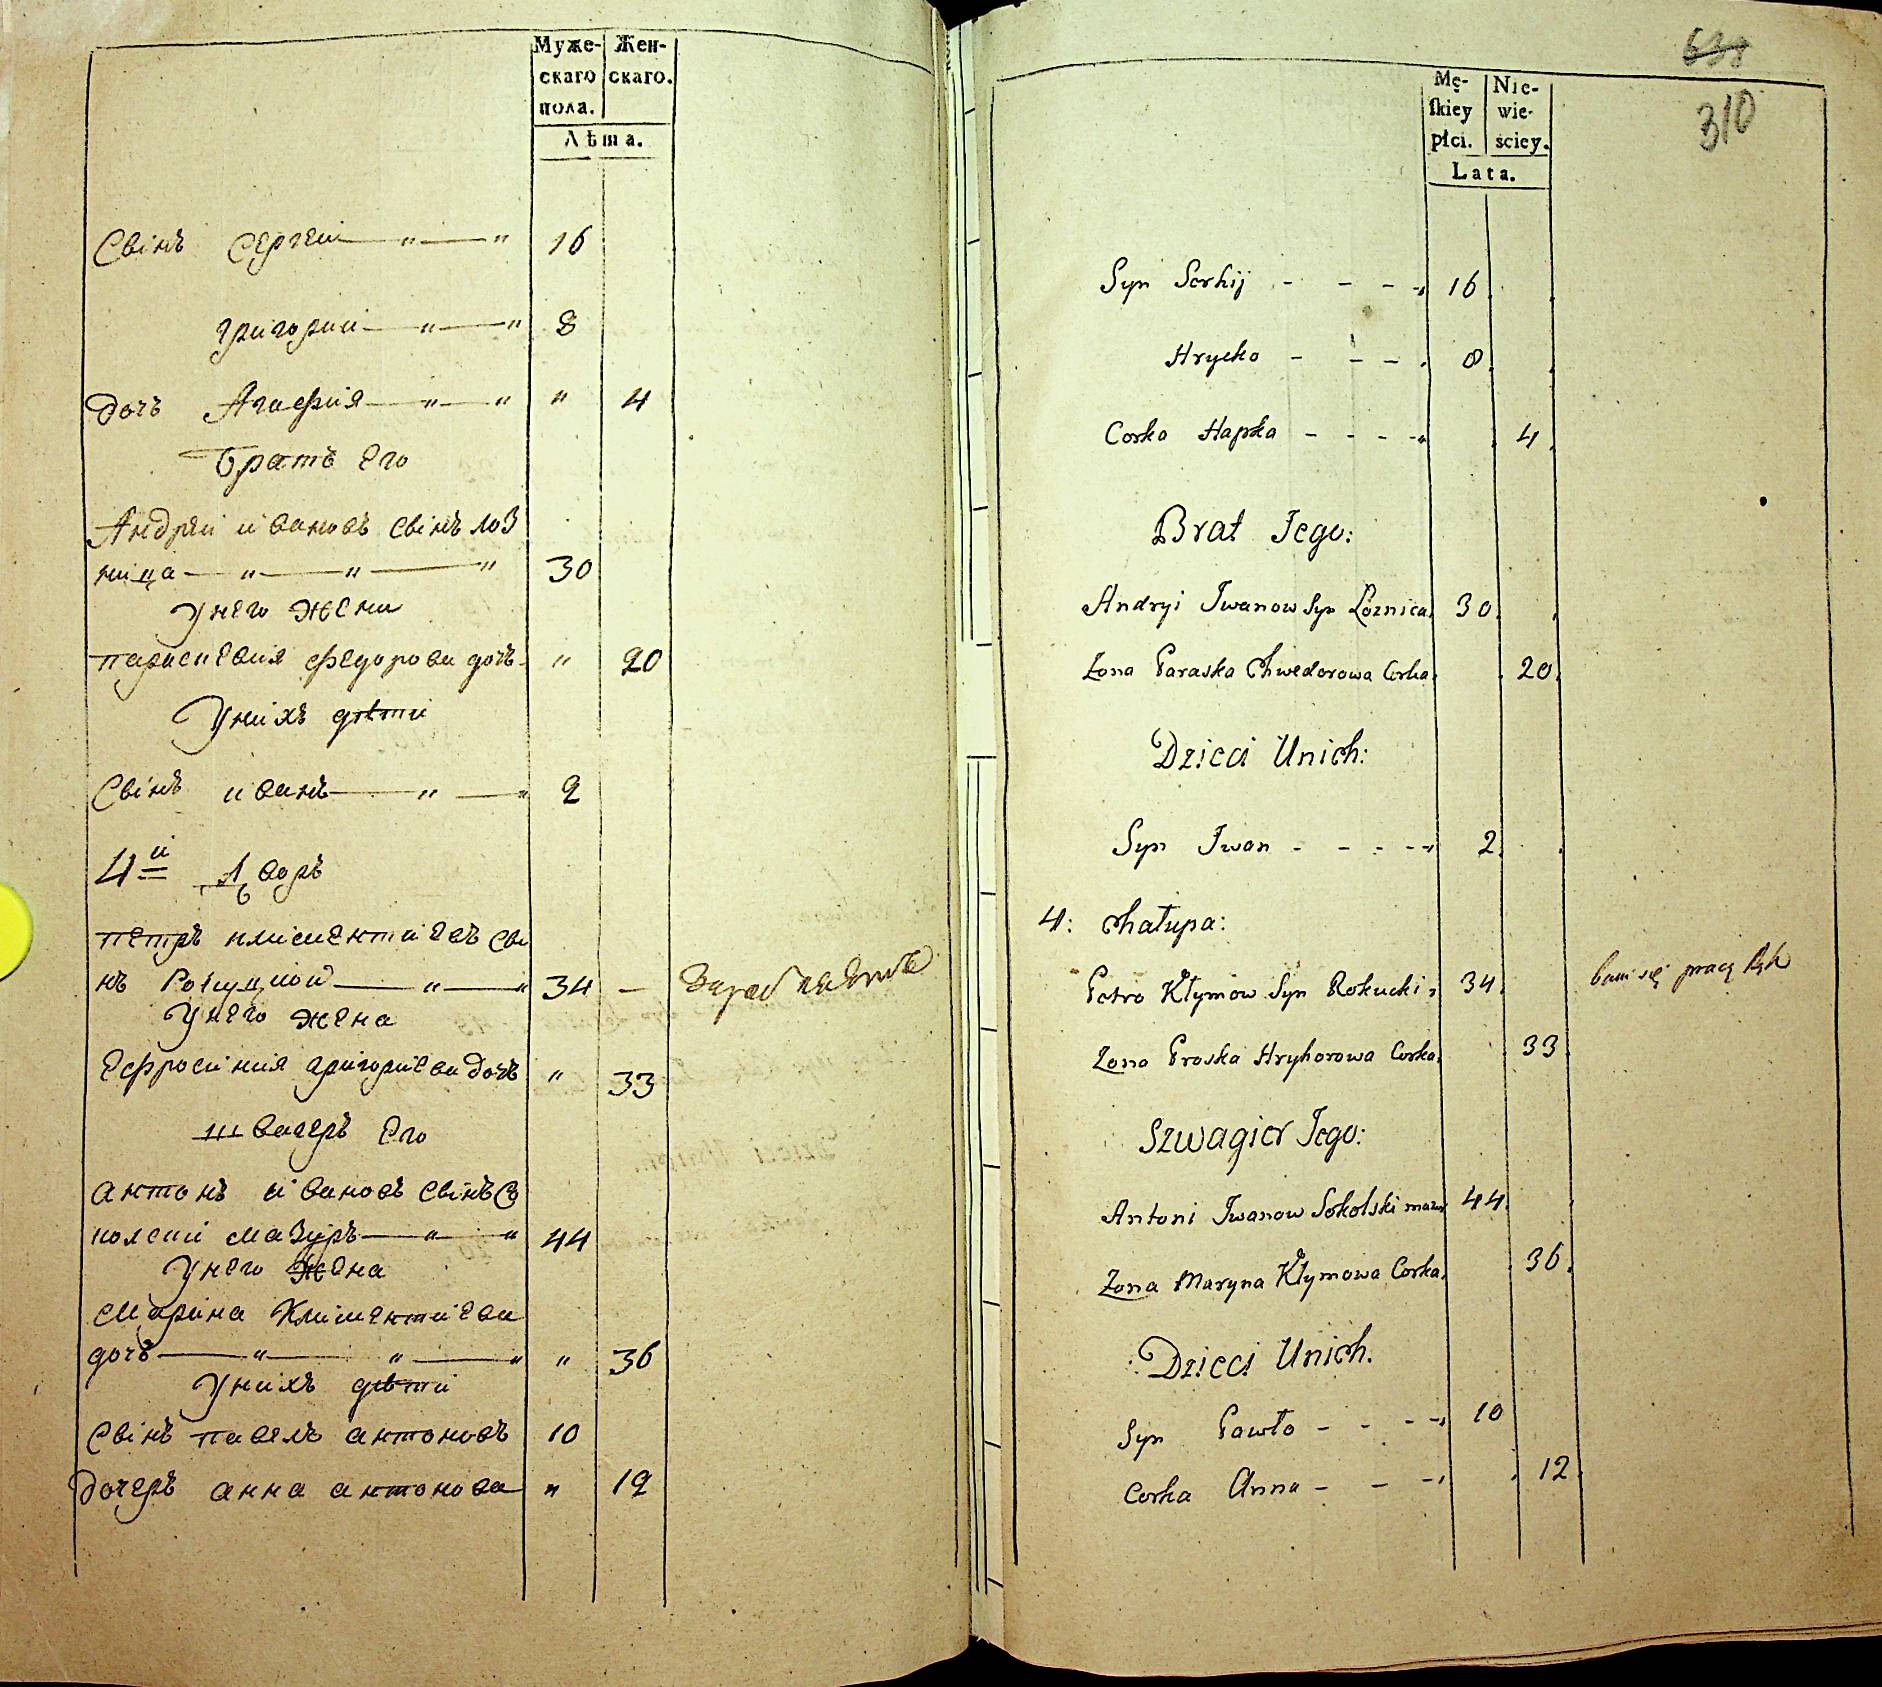 Муже- Жен-
скаго скаго.
пола.
Лѣта.
Свінъ Сергеи — " — " 16
Григории — " — " 8
дочъ Агафия — " — " " 4
Братъ Его
Андреи ивановъ Свінъ Лоз
ница — " — " — " 30
Унего жена
параскевия федорова дочъ " 20
Унихъ дѣти
Свінъ иванъ — " — " 2
4й Дворъ
петръ климентиевъ Сві
нъ Рокуцкой — " — " 34 —
Унего жена
Ефросиния григориева дочъ " 33
швагеръ Его
антонъ ивановъ Свінъ Со
колский мазуръ — " — " 44
Унего жена
Марина Климентиева
дочъ — " — " — " " 36
Унихъ дѣти
Свінъ павелъ антоновъ 10
дочеръ анна антонова " 12
638
310
Mę- Nie-
skiey wie-
płci. sciey.
Lata.
Syn Serhij - - - - 16
Hrycko - - - 8
Corka Hapka - - - - 4
Brat Jego:
Andryi Iwanow Syn Łoznica 30
Zona Paraska Chwedorowa Corka 20
Dzieci Unich:
Syn Iwan - - - - 2
4: Chałupa:
Petro Kłymow Syn Rokucki 34
Zona Proska Hryhorowa Corka 33
Szwagier Jego:
Antoni Iwanow Sokolski mazur 44
Zona Maryna Kłymowa Corka 36
Dzieci Unich.
Syn Pawło - - - 10
Corka Anna - - - 12